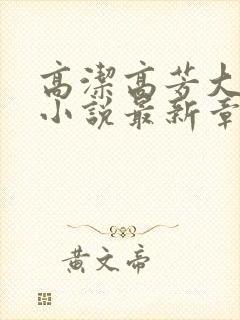 高潔高芳大
小説最新章
黃文帝